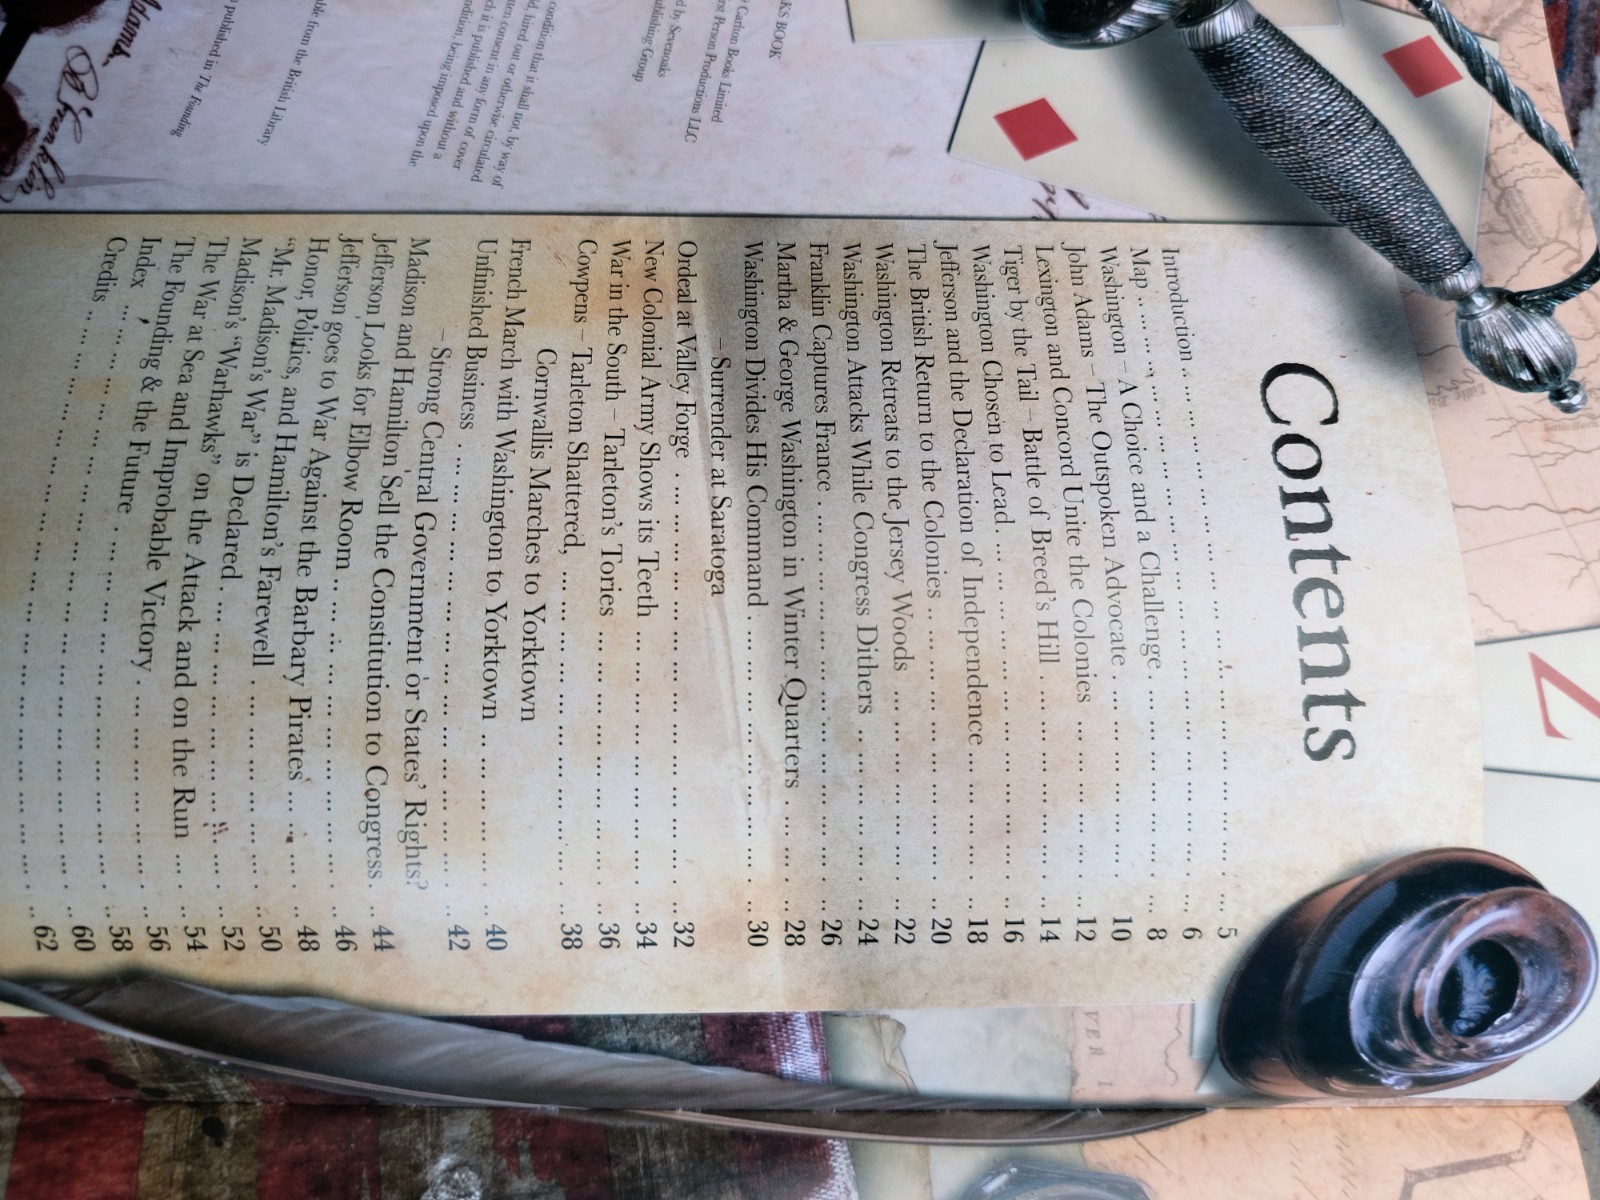 KS BOOK
Carlton Books Limited
Person Productions LLC
d by Sevenoaks
blishing Group
condition that it shall not, by way of
d, hired out or otherwise circulated
consent in any form of cover
ch it is published and without a
ndition, being imposed upon the
ble from the British Library
published in The Founding
Adams
B Franklin
Contents
Introduction 5
Map 6
Washington – A Choice and a Challenge 8
John Adams – The Outspoken Advocate 10
Lexington and Concord Unite the Colonies 12
Tiger by the Tail – Battle of Breed's Hill 14
Washington Chosen to Lead 16
Jefferson and the Declaration of Independence 18
The British Return to the Colonies 20
Washington Retreats to the Jersey Woods 22
Washington Attacks While Congress Dithers 24
Franklin Captures France 26
Martha & George Washington in Winter Quarters 28
Washington Divides His Command 30
– Surrender at Saratoga
Ordeal at Valley Forge 32
New Colonial Army Shows its Teeth 34
War in the South – Tarleton's Tories 36
Cowpens – Tarleton Shattered, 38
Cornwallis Marches to Yorktown
French March with Washington to Yorktown 40
Unfinished Business 42
– Strong Central Government or States' Rights?
Madison and Hamilton Sell the Constitution to Congress 44
Jefferson Looks for Elbow Room 46
Jefferson goes to War Against the Barbary Pirates 48
Honor, Politics, and Hamilton's Farewell 50
"Mr. Madison's War" is Declared 52
Madison's "Warhawks" on the Attack and on the Run 54
The War at Sea and Improbable Victory 56
The Founding & the Future 58
Index 60
Credits 62